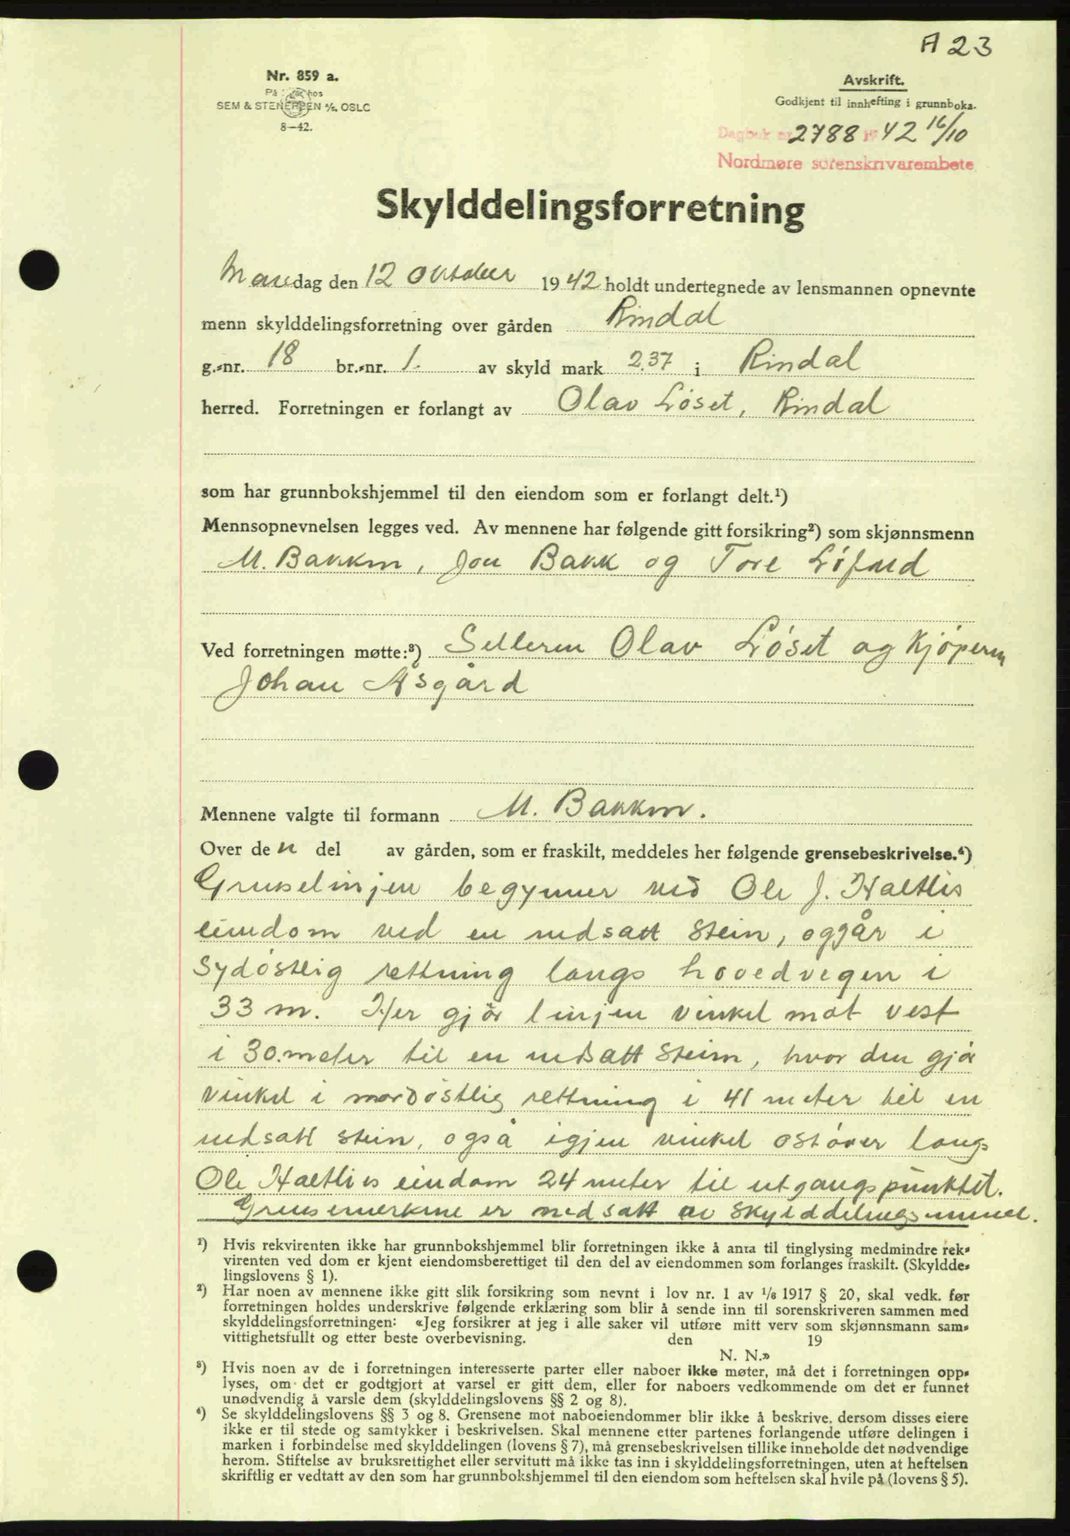 A 23
Nr. 859 a.
På lager hos
SEM & STENERSEN A/S, OSLO
8—42.
Avskrift.
Godkjent til innhefting i grunnboka.
Dagbok nr 2788 19 42 16/10
Nordmøre sorenskrivarembete
Skylddelingsforretning
Mandag den 12 oktober 1942 holdt undertegnede av lensmannen opnevnte
menn skylddelingsforretning over gården Rindal
g.-nr. 18 br.-nr. 1. av skyld mark 2.37 i Rindal
herred. Forretningen er forlangt av Olav Løset, Rindal
som har grunnbokshjemmel til den eiendom som er forlangt delt.¹)
Mennsopnevnelsen legges ved. Av mennene har følgende gitt forsikring²) som skjønnsmenn
M. Bakken, Jon Bakk og Tore Løfald
Ved forretningen møtte:³) Selleren Olav Løset og Kjøperen
Johan Åsgård
Mennene valgte til formann M. Bakken.
Over de n del av gården, som er fraskilt, meddeles her følgende grensebeskrivelse.⁴)
Grenselinjen begynner ved Ole J. Haltlis
eiendom ved en nedsatt stein, oggår i
sydøstlig rettning langs hovedvegen i
33 m. Her gjør linjen vinkel mot vest
i 30 meter til en nedsatt steinn, hvor den gjør
vinkel i nordøstlig rettning i 41 meter til en
nedsatt stein, også igjen vinkel østover langs
Ole Haltlis eiendom 24 meter til utgangspunktet.
Grensemerkene er nedsatt av skylddelingsmennene.
¹) Hvis rekvirenten ikke har grunnbokshjemmel blir forretningen ikke å anta til tinglysing medmindre rek-
virenten ved dom er kjent eiendomsberettiget til den del av eiendommen som forlanges fraskilt. (Skyldde-
lingslovens § 1).
²) Har noen av mennene ikke gitt slik forsikring som nevnt i lov nr. 1 av 1/6 1917 § 20, skal vedk. før
forretningen holdes underskrive følgende erklæring som blir å sende inn til sorenskriveren sammen med
skylddelingsforretningen: «Jeg forsikrer at jeg i alle saker vil utføre mitt verv som skjønnsmann sam-
vittighetsfullt og etter beste overbevisning. den 19
N. N.»
³) Hvis noen av de i forretningen interesserte parter eller naboer ikke møter, må det i forretningen opp-
lyses, om det er godtgjort at varsel er gitt dem, eller for naboers vedkommende om det er funnet
unødvendig å varsle dem (skylddelingslovens §§ 2 og 8).
⁴) Se skylddelingslovens §§ 3 og 8. Grensene mot naboeiendommer blir ikke å beskrive, dersom disses eiere
ikke er til stede og samtykker i beskrivelsen. Skal mennene etter partenes forlangende utføre delingen i
marken i forbindelse med skylddelingen (lovens § 7), må grensebeskrivelsen tillike inneholde det nødvendige
herom. Stiftelse av bruksrettighet eller servitutt må ikke tas inn i skylddelingsforretningen, uten at heftelsen
skriftlig er vedtatt av den som har grunnbokshjemmel til den eiendom som heftelsen skal hvile på (lovens § 5).